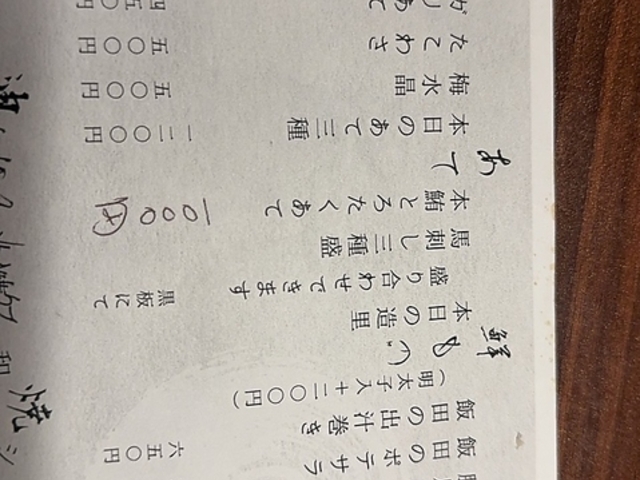 飯田のポテサラ 六五〇円
飯田の出汁巻き
(明太子入+二〇〇円)
鮮もの
本日の造里 黒板にて
盛り合わせできます
馬刺し三種盛
本鮪とろたくあて 一000円
あて
本日のあて三種 一二〇〇円
梅水晶 五〇〇円
たこわさ 五〇〇円
焼